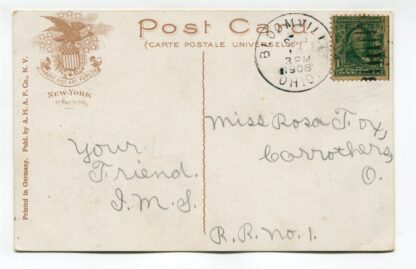 Post Card
(CARTE POSTALE UNIVERSELLE)
NEW-YORK
Printed in Germany. Publ. by A. H. A. P. Co., N. Y.
BLOOMVILLE
3 PM
1908
OHIO
1
Your
Friend.
I.M.S.
Miss Rosa Fox,
Carrothers
O.
R.R. No. 1.